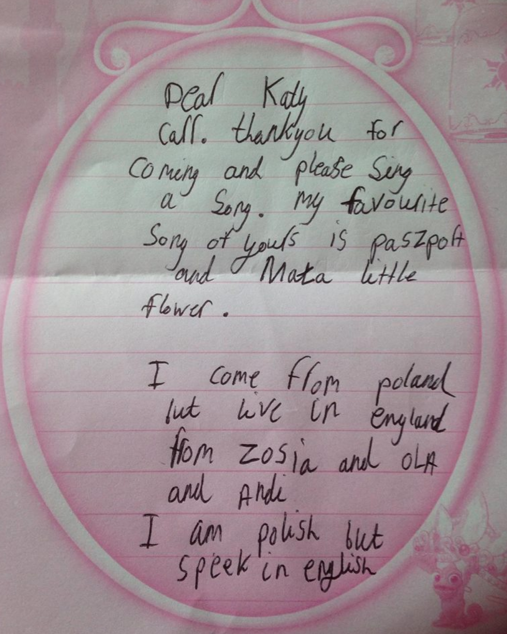 Dear Katy
Call. thankyou for
coming and please sing
a song. my favourite
song of yours is paszport
and Mała little
flower.
I come from poland
but live in england
from zosia and OLA
and Andi
I am polish but
speek in english